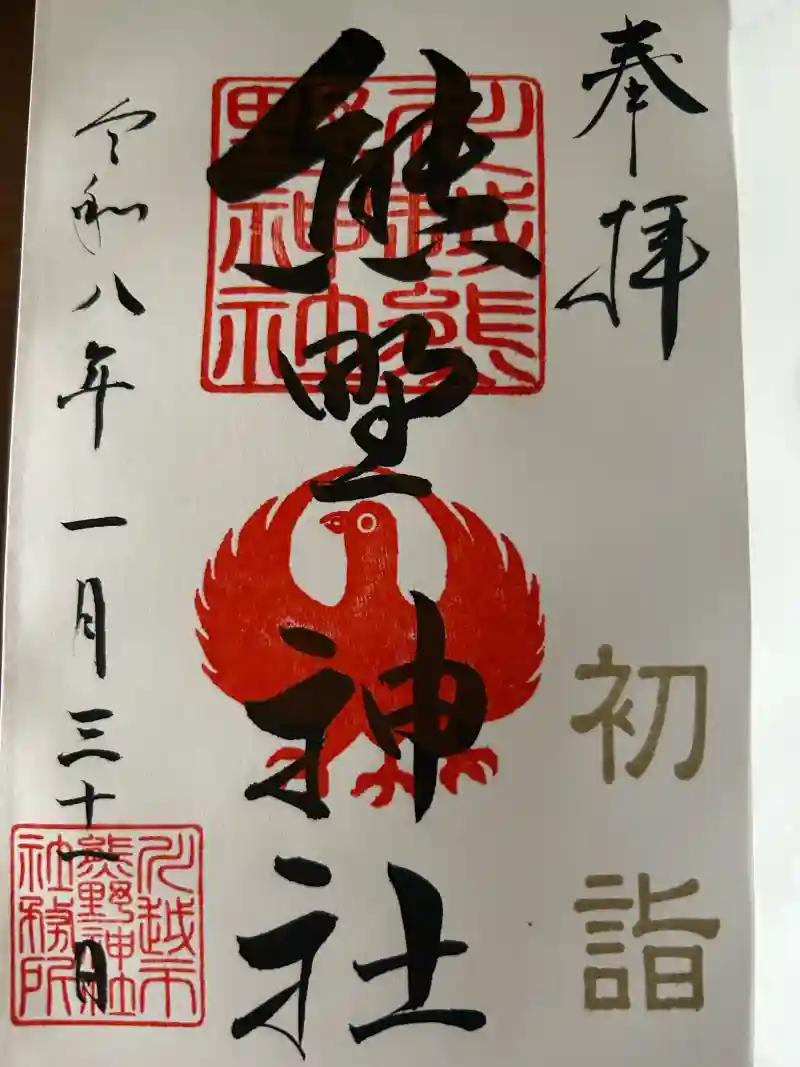 奉拝
初詣
川越熊野神社
熊野神社
令和八年一月三十一日
川越市
熊野神社
社務所